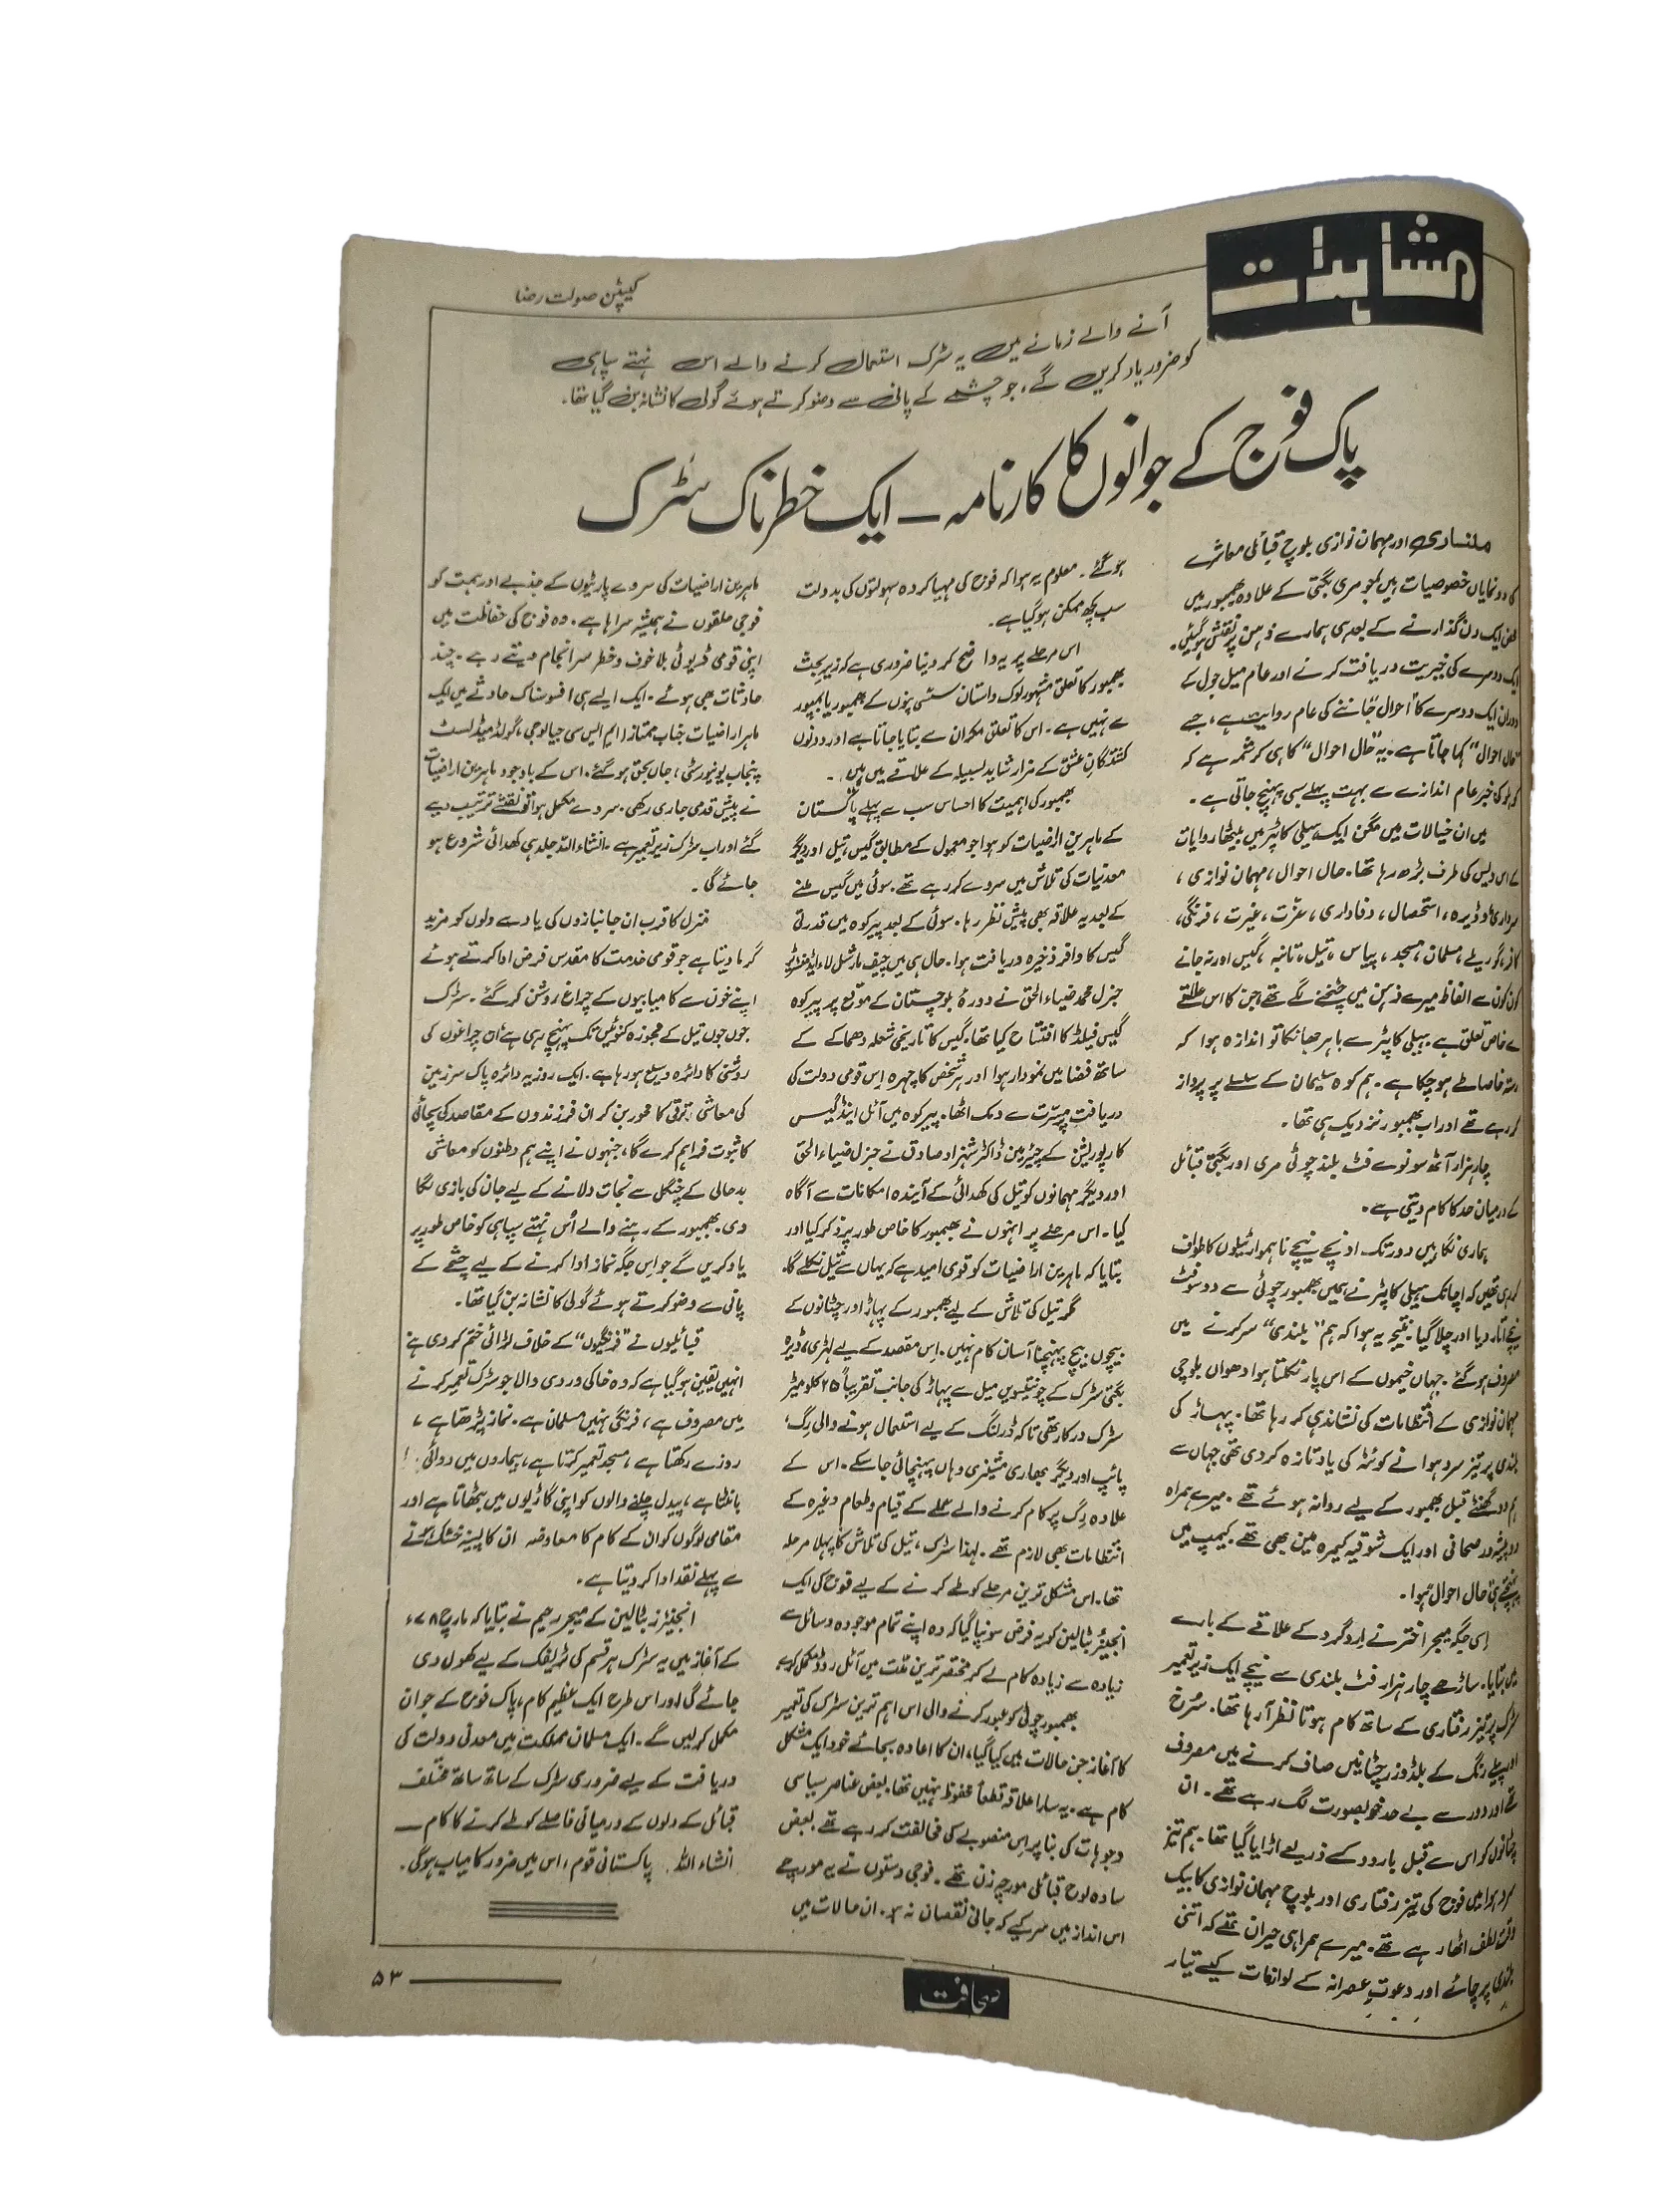 مشاہدات
کیپٹن صولت رضا
آنے والے زمانے میں یہ سڑک استعمال کرنے والے اس نہتے سپاہی
کو ضرور یاد کریں گے، جو چشمے کے پانی سے وضو کرتے ہوئے گولی کا نشانہ بن گیا تھا۔
پاک فوج کے جوانوں کا کارنامہ — ایک خطرناک سڑک
ملنساری اور مہمان نوازی بلوچ قبائلی معاشرے
کا دو نمایاں خصوصیات ہیں جو مری بگٹی کے علاوہ بھمبور میں
ایک دن گذارنے کے بعد ہی ہمارے ذہن پر نقش ہو گئیں۔
ایک دوسرے کی خیریت دریافت کرنے اور عام میل جول کے
دوران ایک دوسرے کا "احوال" جاننے کی عام روایت ہے، جسے
"حال احوال" کہا جاتا ہے۔ یہ "حال احوال" کا ہی کرشمہ ہے کہ
کوہلو کی خبر عام اندازے سے بہت پہلے سبی پہنچ جاتی ہے۔
میں ان خیالات میں مگن ایک ہیلی کاپٹر میں بیٹھا روایات
کے اس دیس کی طرف بڑھ رہا تھا۔ حال احوال، مہمان نوازی،
سرداری، وڈیرہ، استحصال، وفاداری، عزّت، غیرت، فرنگی،
کافر، گوریلے، مسلمان، مسجد، پیاس، تیل، تانبہ، گیس اور نہ جانے
کون کون سے الفاظ میرے ذہن میں چٹخنے لگے تھے، جن کا اس علاقے
سے خاص تعلق ہے۔ ہیلی کاپٹر سے باہر جھانکا تو اندازہ ہوا کہ
رستہ خاصا طے ہو چکا ہے۔ ہم کوہ سلیمان کے سلسلے پر پرواز
کر رہے تھے اور اب بھمبور نزدیک ہی تھا۔
چار ہزار آٹھ سو نوے فٹ بلند چوٹی مری اور بگٹی قبائل
کے درمیان حد کا کام دیتی ہے۔
ہماری نگاہیں دور تک اونچے نیچے ناہموار ٹیلوں کا طواف
کر رہی تھیں کہ اچانک ہیلی کاپٹر نے ہمیں بھمبور چوٹی سے دو سو فٹ
نیچے اتار دیا اور چلا گیا۔ نتیجہ یہ ہوا کہ ہم "بلندی" سر کرنے میں
مصروف ہو گئے۔ جہاں خیموں کے اس پار نکلتا ہوا دھواں بلوچی
مہمان نوازی کے انتظامات کی نشاندہی کر رہا تھا۔ پہاڑ کی
بلندی پر تیز سرد ہوا نے کوئٹہ کی یاد تازہ کر دی تھی جہاں سے
ہم دو گھنٹے قبل بھمبور کے لیے روانہ ہوئے تھے۔ میرے ہمراہ
دو پیشہ ور صحافی اور ایک شوقیہ کیمرہ مین بھی تھے۔ کیمپ میں
پہنچتے ہی حال احوال ہوا۔
اسی جگہ میجر اختر نے اردگرد کے علاقے کے بارے
میں بتایا۔ ساڑھے چار ہزار فٹ بلندی سے نیچے ایک زیر تعمیر
سڑک پر تیز رفتاری کے ساتھ کام ہوتا نظر آ رہا تھا۔ سُرخ
اور پیلے رنگ کے بلڈوزر چٹانیں صاف کرنے میں مصروف
تھے اور دور سے بے حد خوبصورت لگ رہے تھے۔ ان
چٹانوں کو اس سے قبل بارود کے ذریعے اڑایا گیا تھا۔ ہم تیز
سرد ہوا میں فوج کی تیز رفتاری اور بلوچ مہمان نوازی کا بیک
وقت لطف اٹھا رہے تھے۔ میرے ہمراہی حیران تھے کہ اتنی
بلندی پر چائے اور دعوتِ عصرانہ کے لوازمات کیسے تیار
ہو گئے۔ معلوم یہ ہوا کہ فوج کی مہیا کردہ سہولتوں کی بدولت
سب کچھ ممکن ہو گیا ہے۔
اس مرحلے پر یہ واضح کر دینا ضروری ہے کہ زیر بحث
بھمبور کا تعلق مشہور لوک داستان سسّی پنوں کے بھمبور یا بمبور
سے نہیں ہے۔ اس کا تعلق مکران سے بتایا جاتا ہے اور دونوں
کشتگانِ عشق کے مزار شاید لسبیلہ کے علاقے میں ہیں۔
بھمبور کی اہمیت کا احساس سب سے پہلے پاکستان
کے ماہرین اراضیات کو ہوا جو معمول کے مطابق گیس، تیل اور دیگر
معدنیات کی تلاش میں سروے کر رہے تھے۔ سوئی میں گیس ملنے
کے بعد یہ علاقہ بھی پیش نظر رہا۔ سوئی کے بعد پیرکوہ میں قدرتی
گیس کا وافر ذخیرہ دریافت ہوا۔ حال ہی میں چیف مارشل لاء ایڈمنسٹریٹر
جنرل محمد ضیاء الحق نے دورۂ بلوچستان کے موقع پر پیرکوہ
گیس فیلڈ کا افتتاح کیا تھا۔ گیس کا تاریخی شعلہ دھماکے کے
ساتھ فضا میں نمودار ہوا اور ہر شخص کا چہرہ اس قومی دولت کی
دریافت پر مسرّت سے دمک اٹھا۔ پیرکوہ میں آئل اینڈ گیس
کارپوریشن کے چیئرمین ڈاکٹر شہزاد صادق نے جنرل ضیاء الحق
اور دیگر مہمانوں کو تیل کی کھدائی کے آیندہ امکانات سے آگاہ
کیا۔ اس مرحلے پر انہوں نے بھمبور کا خاص طور پر ذکر کیا اور
بتایا کہ ماہرین اراضیات کو قوی امید ہے کہ یہاں سے تیل نکلے گا۔
مگر تیل کی تلاش کے لیے بھمبور کے پہاڑ اور چٹانوں کے
بیچوں بیچ پہنچنا آسان کام نہیں۔ اس مقصد کے لیے لہڑی، ڈیرہ
بگٹی سڑک کے چونتیسویں میل سے پہاڑ کی جانب تقریباً ۲۵ کلو میٹر
سڑک درکار تھی تاکہ ڈرلنگ کے لیے استعمال ہونے والی رگ،
پائپ اور دیگر بھاری مشینری وہاں پہنچائی جا سکے۔ اس کے
علاوہ رگ پر کام کرنے والے عملے کے قیام و طعام وغیرہ کے
انتظامات بھی لازم تھے۔ لہذا سڑک، تیل کی تلاش کا پہلا مرحلہ
تھا۔ اس مشکل ترین مرحلے کو طے کرنے کے لیے فوج کی ایک
انجینئر بٹالین کو یہ فرض سونپا گیا کہ وہ اپنے تمام موجودہ وسائل سے
زیادہ سے زیادہ کام لے کر مختصر ترین مدّت میں آئل روڈ مکمل کرے۔
بھمبور چوٹی کو عبور کرنے والی اس اہم ترین سڑک کی تعمیر
کا آغاز جن حالات میں کیا گیا، ان کا اعادہ بجائے خود ایک مشکل
کام ہے۔ یہ سارا علاقہ قطعاً محفوظ نہیں تھا۔ بعض عناصر سیاسی
وجوہات کی بنا پر اس منصوبے کی مخالفت کر رہے تھے۔ بعض
سادہ لوح قبائلی مورچہ زن تھے۔ فوجی دستوں نے یہ مورچے
اس انداز میں سر کیے کہ جانی نقصان نہ ہو۔ ان حالات میں
ماہرین اراضیات کی سروے پارٹیوں کے جذبے اور ہمت کو
فوجی حلقوں نے ہمیشہ سراہا ہے۔ وہ فوج کی حفاظت میں
اپنی قومی ڈیوٹی بلا خوف و خطر سرانجام دیتے رہے۔ چند
حادثات بھی ہوئے۔ ایک ایسے ہی افسوسناک حادثے میں ایک
ماہر اراضیات جناب ممتاز (ایم ایس سی جیالوجی، گولڈ میڈلسٹ
پنجاب یونیورسٹی) جاں بحق ہو گئے۔ اس کے باوجود ماہرین اراضیات
نے پیش قدمی جاری رکھی۔ سروے مکمل ہوا تو نقشے ترتیب دیے
گئے اور اب سڑک زیر تعمیر ہے۔ انشاء اللہ جلد ہی کھدائی شروع ہو
جائے گی۔
منزل کا قرب ان جانبازوں کی یاد سے دلوں کو مزید
گرما دیتا ہے جو قومی خدمت کا مقدس فرض ادا کرتے ہوئے
اپنے خون سے کامیابیوں کے چراغ روشن کر گئے۔ سڑک
جوں جوں تیل کے مجوزہ کنوئیں تک پہنچ رہی ہے ان چراغوں کی
روشنی کا دائرہ وسیع ہو رہا ہے۔ ایک روز یہ دائرہ پاک سرزمین
کی معاشی ترقی کا محور بن کر ان فرزندوں کے مقاصد کی سچائی
کا ثبوت فراہم کرے گا، جنہوں نے اپنے ہم وطنوں کو معاشی
بدحالی کے چنگل سے نجات دلانے کے لیے جان کی بازی لگا
دی۔ بھمبور کے رہنے والے اُس نہتے سپاہی کو خاص طور پر
یاد کریں گے جو اس جگہ نماز ادا کرنے کے لیے چشمے کے
پانی سے وضو کرتے ہوئے گولی کا نشانہ بن گیا تھا۔
قبائلیوں نے "فرنگیوں" کے خلاف لڑائی ختم کر دی ہے
انہیں یقین ہو گیا ہے کہ وہ خاکی وردی والا جو سڑک تعمیر کرنے
میں مصروف ہے، فرنگی نہیں مسلمان ہے۔ نماز پڑھتا ہے،
روزے رکھتا ہے، مسجد تعمیر کرتا ہے، بیماروں میں دوائی
بانٹتا ہے، پیدل چلنے والوں کو اپنی گاڑیوں میں بٹھاتا ہے اور
مقامی لوگوں کو ان کے کام کا معاوضہ ان کا پسینہ خشک ہونے
سے پہلے نقد ادا کر دیتا ہے۔
انجینئرز بٹالین کے میجر رحیم نے بتایا کہ مارچ ۷۸ء
کے آغاز میں یہ سڑک ہر قسم کی ٹریفک کے لیے کھول دی
جائے گی اور اس طرح ایک عظیم کام، پاک فوج کے جوان
مکمل کر لیں گے۔ ایک مسلمان مملکت میں معدنی دولت کی
دریافت کے لیے ضروری سڑک کے ساتھ ساتھ مختلف
قبائل کے دلوں کے درمیانی فاصلے کو طے کرنے کا کام —
انشاء اللہ پاکستانی قوم، اس میں ضرور کامیاب ہو گی۔
صحافت
۵۳